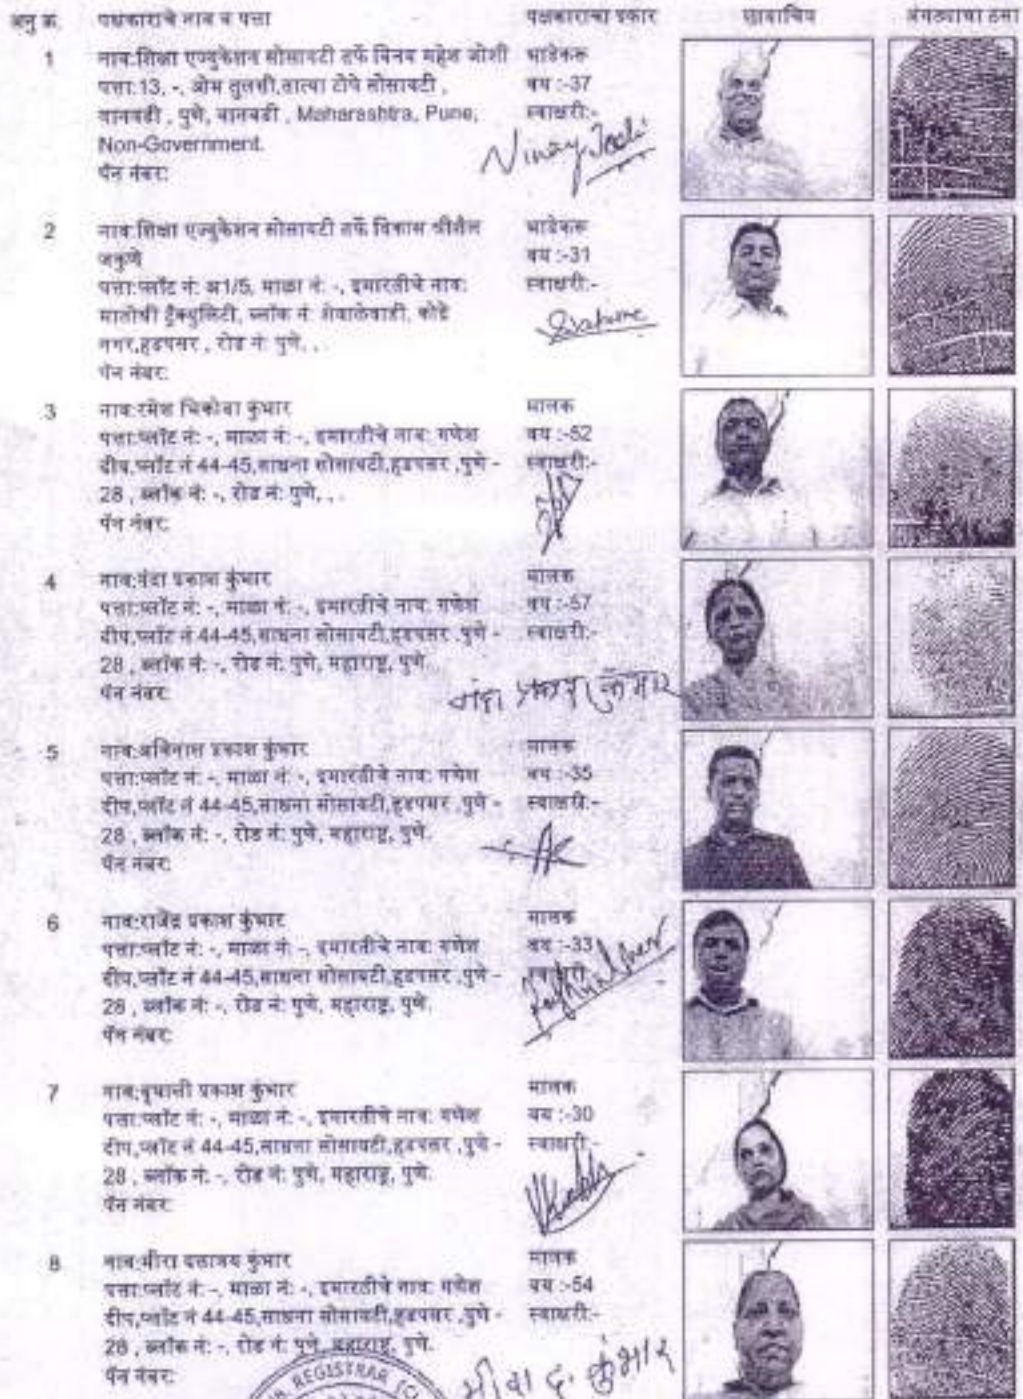 अनु क्र. पक्षकाराचे नाव व पत्ता पक्षकाराचा प्रकार छायाचित्र अंगठ्याचा ठसा
1 नाव:शिक्षा एज्युकेशन सोसायटी तर्फे विनय महेश जोशी
पत्ता:13, -, ओम तुलसी,तात्या टोपे सोसायटी ,
वानवडी , पुणे, वानवडी , Maharashtra, Pune,
Non-Government.
पॅन नंबर:
भाडेकरू
वय :-37
स्वाक्षरी:-
Vinay Joshi
2 नाव:शिक्षा एज्युकेशन सोसायटी तर्फे विकास श्रीशैल
जकुणे
पत्ता:प्लॉट नं: अ1/5, माळा नं: -, इमारतीचे नाव:
मातोश्री ट्रॅंक्युलिटी, ब्लॉक नं: शेवाळेवाडी, कोद्रे
नगर,हडपसर , रोड नं: पुणे, . .
पॅन नंबर:
भाडेकरू
वय :-31
स्वाक्षरी:-
3 नाव:रमेश भिकोबा कुंभार
पत्ता:प्लॉट नं: -, माळा नं: -, इमारतीचे नाव: गणेश
दीप,प्लॉट नं 44-45,साधना सोसायटी,हडपसर ,पुणे -
28 , ब्लॉक नं: -, रोड नं: पुणे, . .
पॅन नंबर:
मालक
वय :-52
स्वाक्षरी:-
4 नाव:नंदा प्रकाश कुंभार
पत्ता:प्लॉट नं: -, माळा नं: -, इमारतीचे नाव: गणेश
दीप,प्लॉट नं 44-45,साधना सोसायटी,हडपसर ,पुणे -
28 , ब्लॉक नं: -, रोड नं: पुणे, महाराष्ट्र, पुणे.
पॅन नंबर:
मालक
वय :-57
स्वाक्षरी:-
नंदा प्रकाश कुंभार
5 नाव:अविनाश प्रकाश कुंभार
पत्ता:प्लॉट नं: -, माळा नं: -, इमारतीचे नाव: गणेश
दीप,प्लॉट नं 44-45,साधना सोसायटी,हडपसर ,पुणे -
28 , ब्लॉक नं: -, रोड नं: पुणे, महाराष्ट्र, पुणे.
पॅन नंबर:
मालक
वय :-35
स्वाक्षरी:-
6 नाव:राजेंद्र प्रकाश कुंभार
पत्ता:प्लॉट नं: -, माळा नं: -, इमारतीचे नाव: गणेश
दीप,प्लॉट नं 44-45,साधना सोसायटी,हडपसर ,पुणे -
28 , ब्लॉक नं: -, रोड नं: पुणे, महाराष्ट्र, पुणे.
पॅन नंबर:
मालक
वय :-33
स्वाक्षरी:-
7 नाव:वृषाली प्रकाश कुंभार
पत्ता:प्लॉट नं: -, माळा नं: -, इमारतीचे नाव: गणेश
दीप,प्लॉट नं 44-45,साधना सोसायटी,हडपसर ,पुणे -
28 , ब्लॉक नं: -, रोड नं: पुणे, महाराष्ट्र, पुणे.
पॅन नंबर:
मालक
वय :-30
स्वाक्षरी:-
8 नाव:मीरा दत्तात्रय कुंभार
पत्ता:प्लॉट नं: -, माळा नं: -, इमारतीचे नाव: गणेश
दीप,प्लॉट नं 44-45,साधना सोसायटी,हडपसर ,पुणे -
28 , ब्लॉक नं: -, रोड नं: पुणे, महाराष्ट्र, पुणे.
पॅन नंबर:
मालक
वय :-54
स्वाक्षरी:-
मीरा द. कुंभार
REGISTRAR